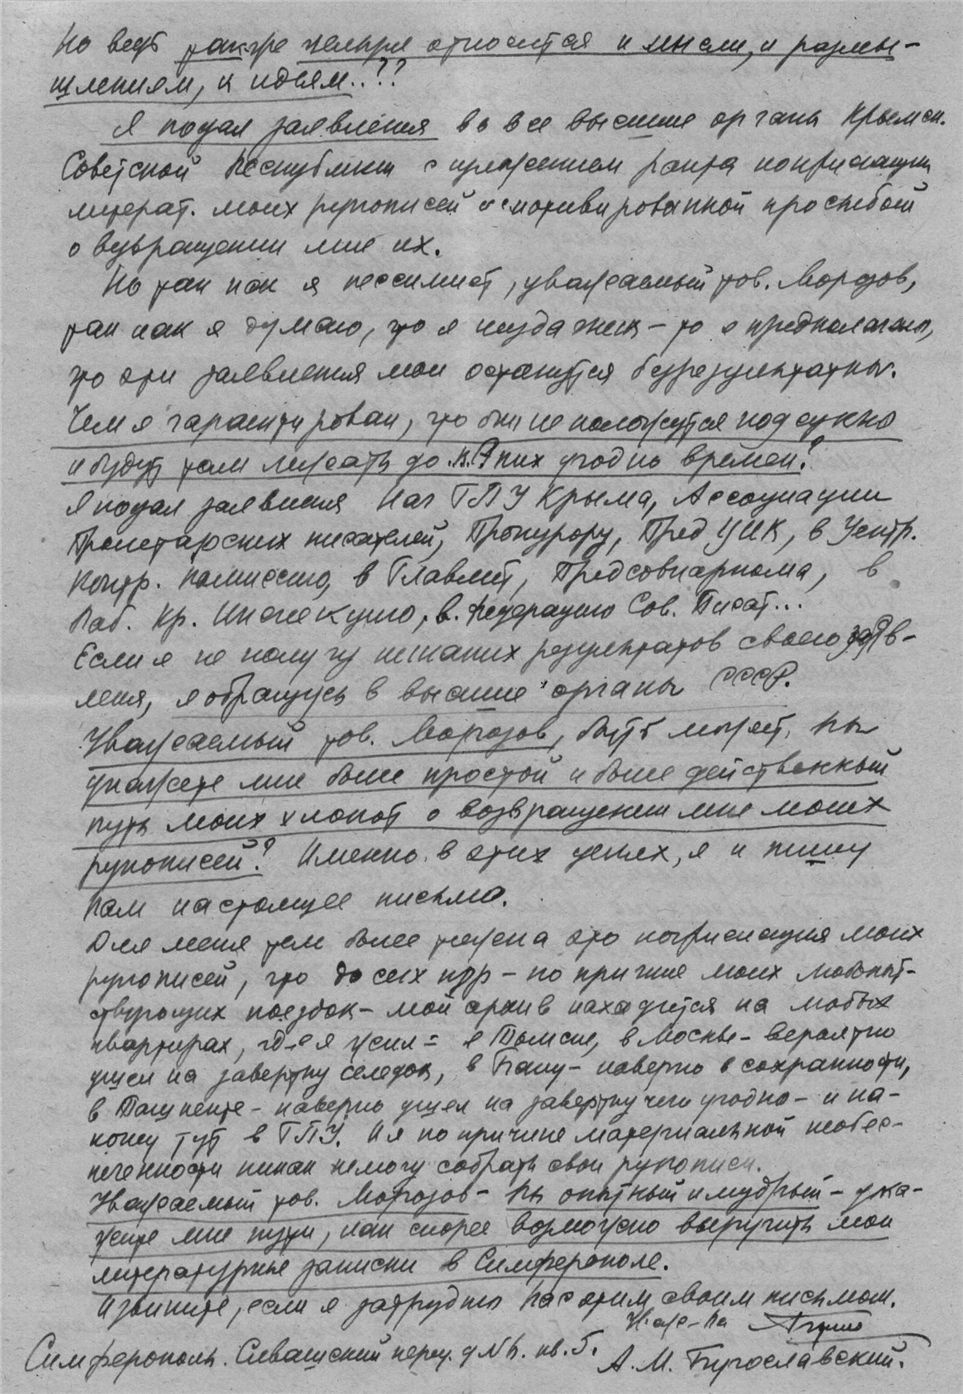 Но ведь также нельзя относится и мысли, и размы-
шлениям, и идеям..??
Я подал заявления во все высшие органы Крымск.
Советской Республики с изложением факта конфискации
литерат. моих рукописей и с мотивированной просьбой
о возвращении мне их.
Но так как я пессимист, уважаемый тов. Морозов,
так как я думаю, что я неудачник – то я предполагаю,
что эти заявления мои останутся безрезультатны.
Чем я гарантирован, что они не положутся под сукно
и будут там лежать до каких угодно времен?
Я подал заявления Нач ГПУ Крыма, Ассоциации
Пролетарских писателей, Прокурору, Пред ЦИК, в Центр.
Контр. Комиссию, в Главлит, Предсовнаркома, в
Раб. Кр. Инспекцию, в Федерацию Сов. Писат...
Если я не получу никаких результатов своего заяв-
ления, я обращусь в высшие органы СССР.
Уважаемый тов. Морозов, быть может, Вы
укажете мне более простой и более действенный
путь моих хлопот о возвращении мне моих
рукописей? Именно в этих целях, я и пишу
Вам настоящее письмо.
Для меня тем более тяжела эта конфискация моих
рукописей, что до сих пор – по причине моих
поездок – мой архив находится на любых
квартирах, где я жил = в Тбилиси, в Москве – вероятно
ушел на завертку селедок, в Баку – наверно в сохранности,
в Ташкенте – наверно ушел на завертку чего угодно – и на-
конец тут в ГПУ. И я по причине материальной необес-
печенности никак не могу собрать свои рукописи.
Уважаемый тов. Морозов – Вы опытный и мудрый – ука-
жите мне пути, как скорее возможно выручить мои
литературные записки в Симферополе.
Извините, если я затрудняю Вас этим своим письмом.
Симферополь. Сивашский переу. д № 6. кв. 5. А. М. Бугославский.